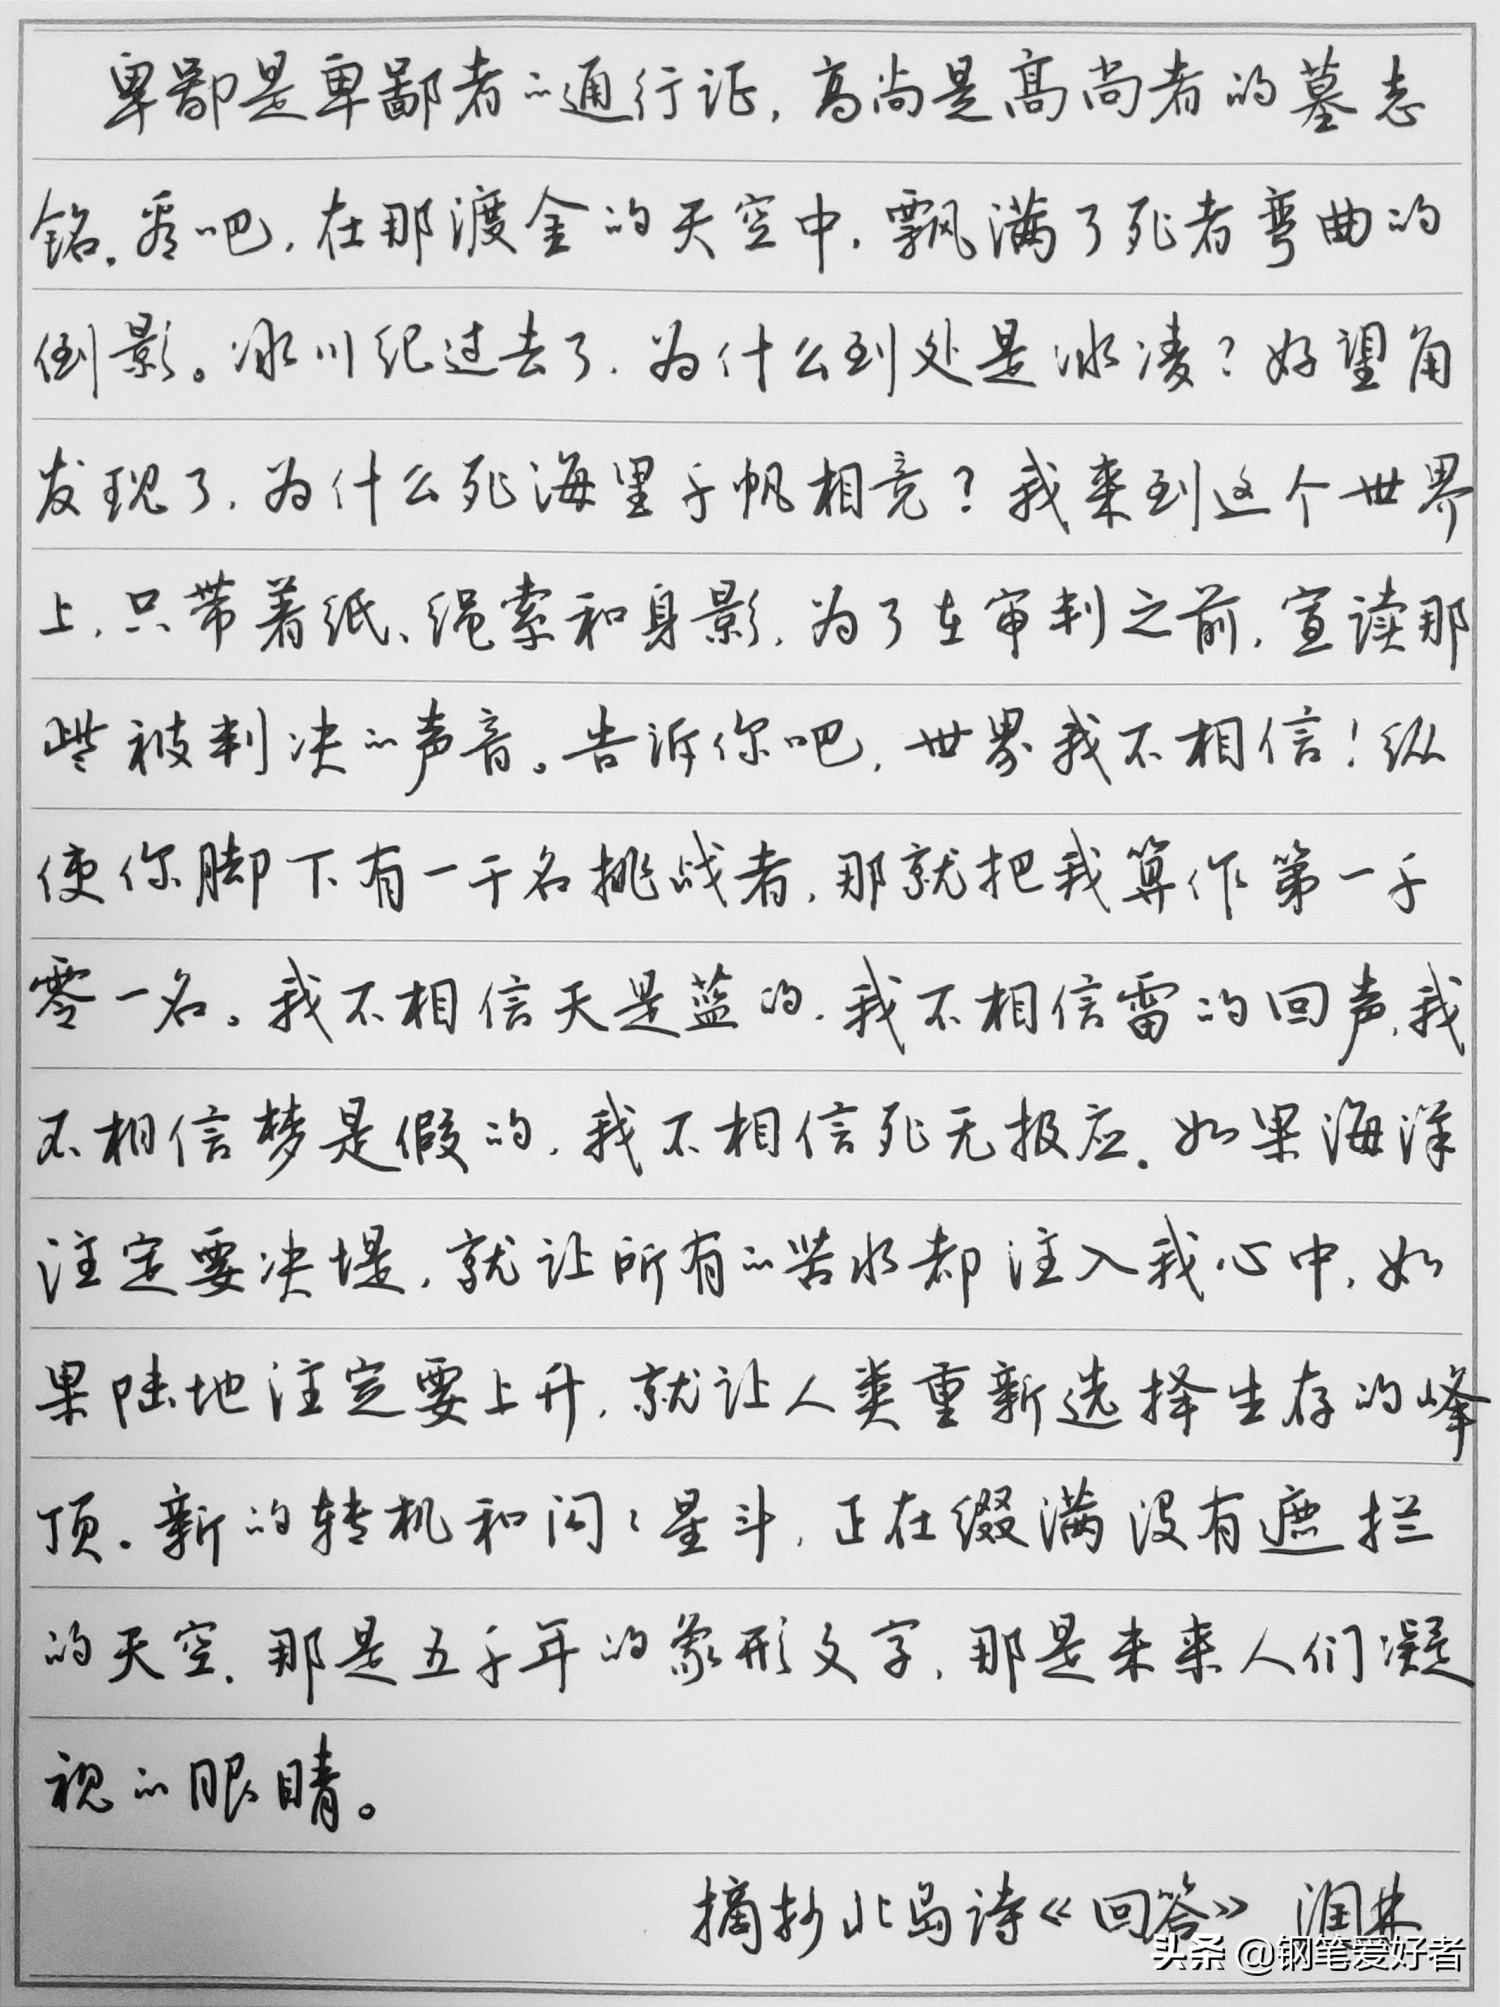 卑鄙是卑鄙者的通行证，高尚是高尚者的墓志
铭。看吧，在那渡金的天空中，飘满了死者弯曲的
倒影。冰川纪过去了，为什么到处是冰凌？好望角
发现了，为什么死海里千帆相竞？我来到这个世界
上，只带着纸、绳索和身影，为了在审判之前，宣读那
些被判决的声音。告诉你吧，世界我不相信！纵
使你脚下有一千名挑战者，那就把我算作第一千
零一名。我不相信天是蓝的，我不相信雷的回声，我
不相信梦是假的，我不相信死无报应。如果海洋
注定要决堤，就让所有的苦水都注入我心中，如
果陆地注定要上升，就让人类重新选择生存的峰
顶。新的转机和闪闪星斗，正在缀满没有遮拦
的天空，那是五千年的象形文字，那是未来人们凝
视的眼睛。
摘抄北岛诗《回答》 润林
头条 @钢笔爱好者